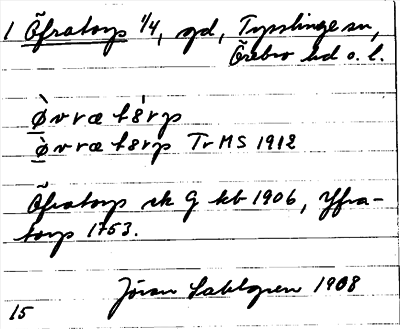 1 Öfratorp 1/4, gd, Tysslinge sn,
Örebro hd o. l.
ø̀vrætórp
ø̀vrætorp TrMS 1912
Öfratorp sk G kb 1906, Yfra-
torp 1753.
Jöran Sahlgren 1908
15